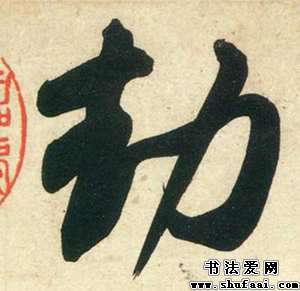 劫
书法爱网
www.shufaai.com